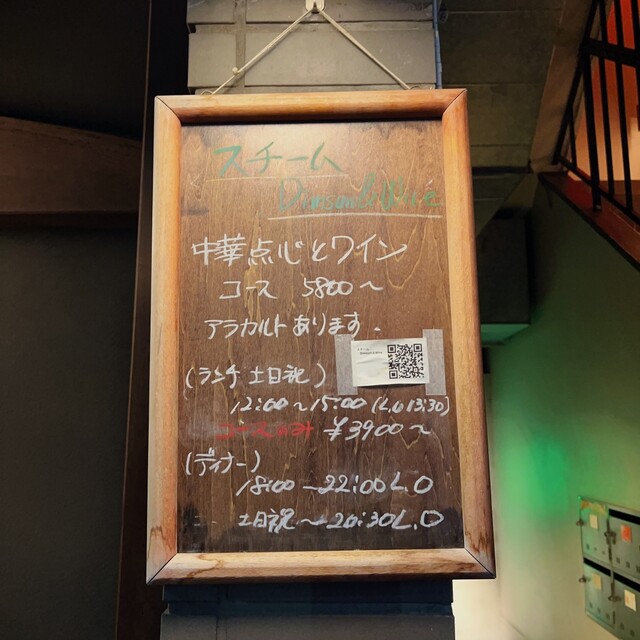 スチーム
Dimsum&Wine
中華点心とワイン
コース 5800〜
アラカルトあります.
(ランチ 土日祝)
12:00〜15:00 (L.o 13:30)
コースのみ ¥3900〜
(ディナー)
18:00 〜22:00 L.O
土日祝〜20:30 L.O